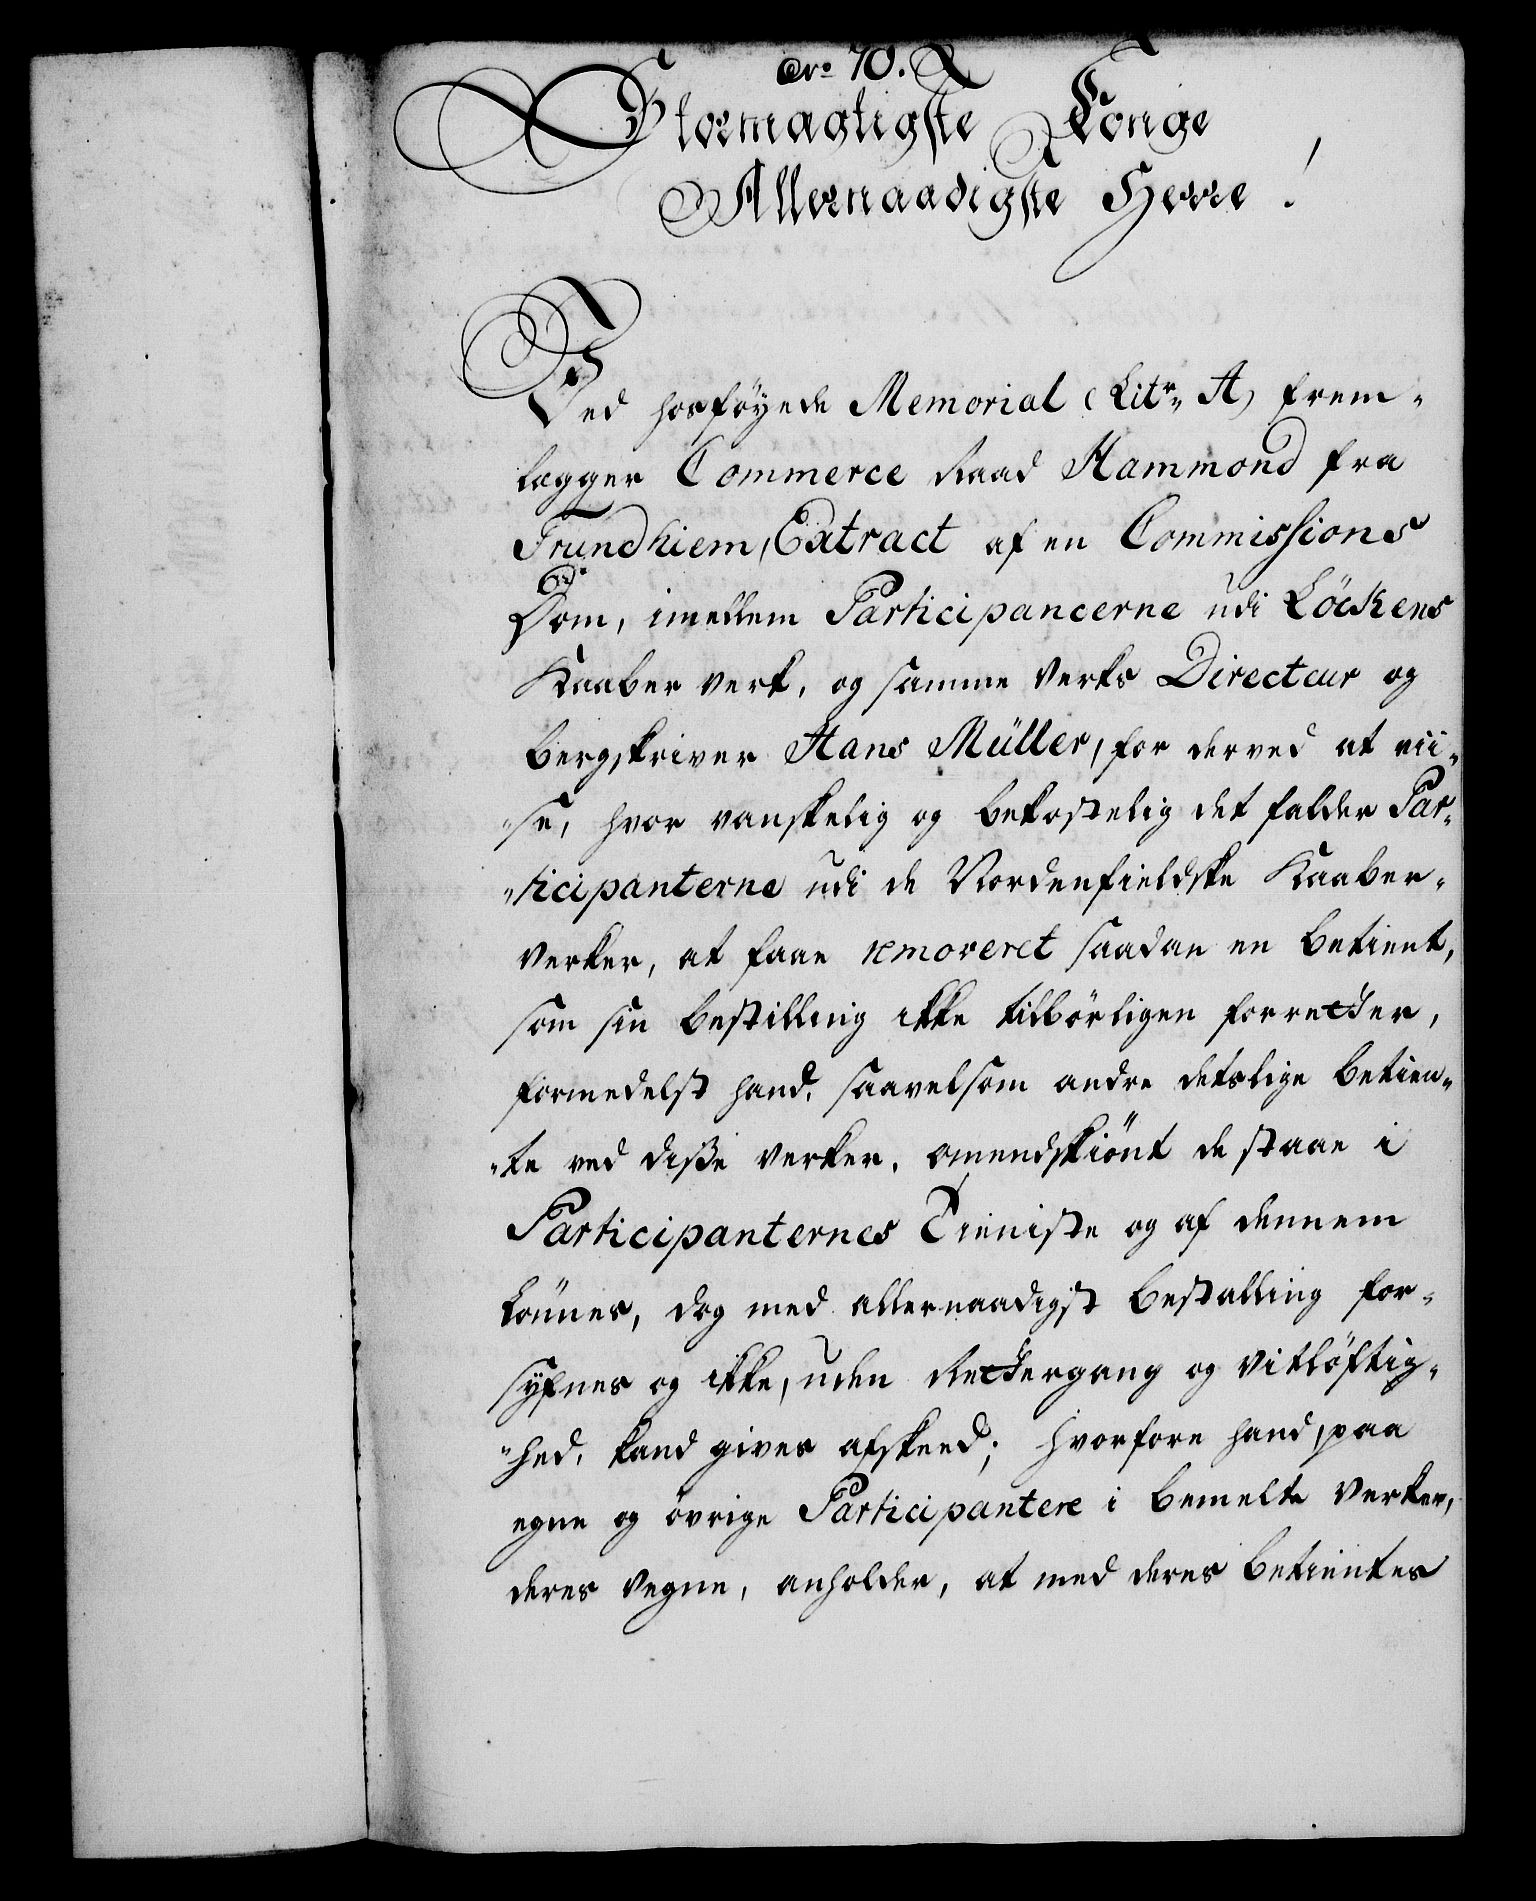 No 70.
Stormægtigste Konge
Allernaadigste Herre!
Ved hosföyede Memorial (Litr. A) frem-
lægger Commerce Raad Hammond fra
Trundhiem, Extract af en Commissions
Dom, imellem Participancerne udi Löckens
Kaaber verk, og samme Verks Directeur og
bergskriver Hans Müller, for derved at vii-
-se, hvor vanskelig og bekostelig det falder Par-
-ticipanterne udi de Nordenfieldske Kaaber-
verker, at faae removeret saadan en betient,
som sin bestilling ikke tilbörligen forretter,
formedelst hand, saavelsom andre detslige betien-
-te ved disse verker, omendskiönt de staae i
Participanternes Tieniste og af dennem
lönnes, dog med allernaadigst bestalling for-
synes og ikke, uden Rettergang og vitlöftig-
-hed, kand gives afskeed; hvorfore hand, paa
egne og övrige Participantere i bemelte verker,
deres vegne, anholder, at med deres betientes